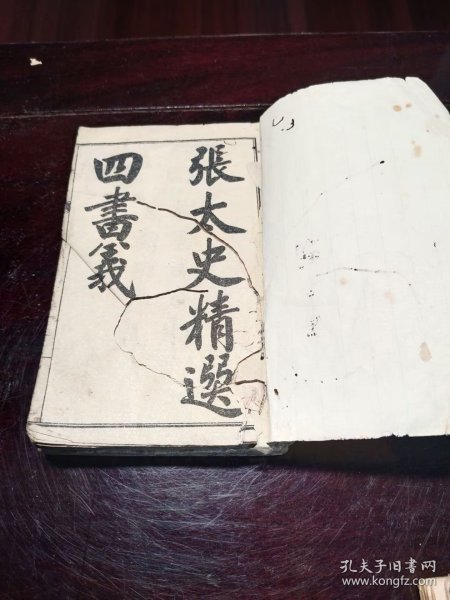 張太史精選
四書義
孔夫子旧书网
www.kongfz.com